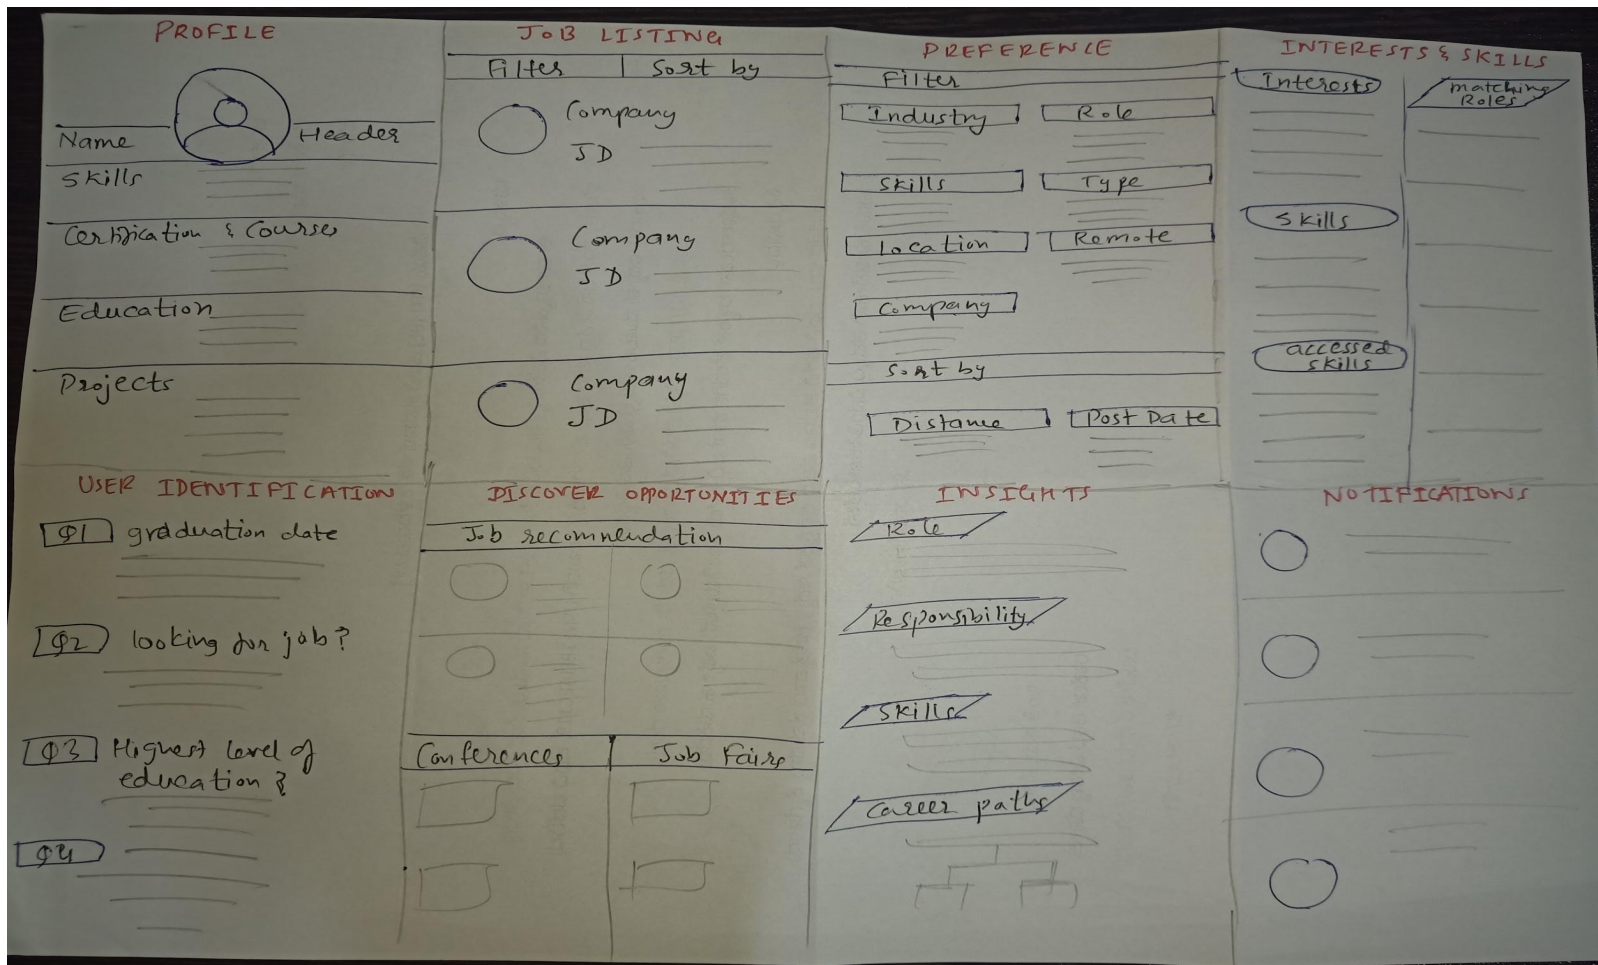 PROFILE
Name
Header
Skills
Certification & Courses
Education
Projects
JOB LISTING
Filter | Sort by
Company
JD
Company
JD
Company
JD
PREFERENCE
Filter
Industry
Role
Skills
Type
Location
Remote
Company
Sort by
Distance
Post Date
INTERESTS & SKILLS
Interests
matching
Roles
Skills
accessed
skills
USER IDENTIFICATION
Q1 graduation date
Q2 looking for job?
Q3 Highest level of
education ?
Q4
DISCOVER OPPORTUNITIES
Job recommendation
Conferences
Job Fairs
INSIGHTS
Role
Responsibility
Skills
Career paths
NOTIFICATIONS